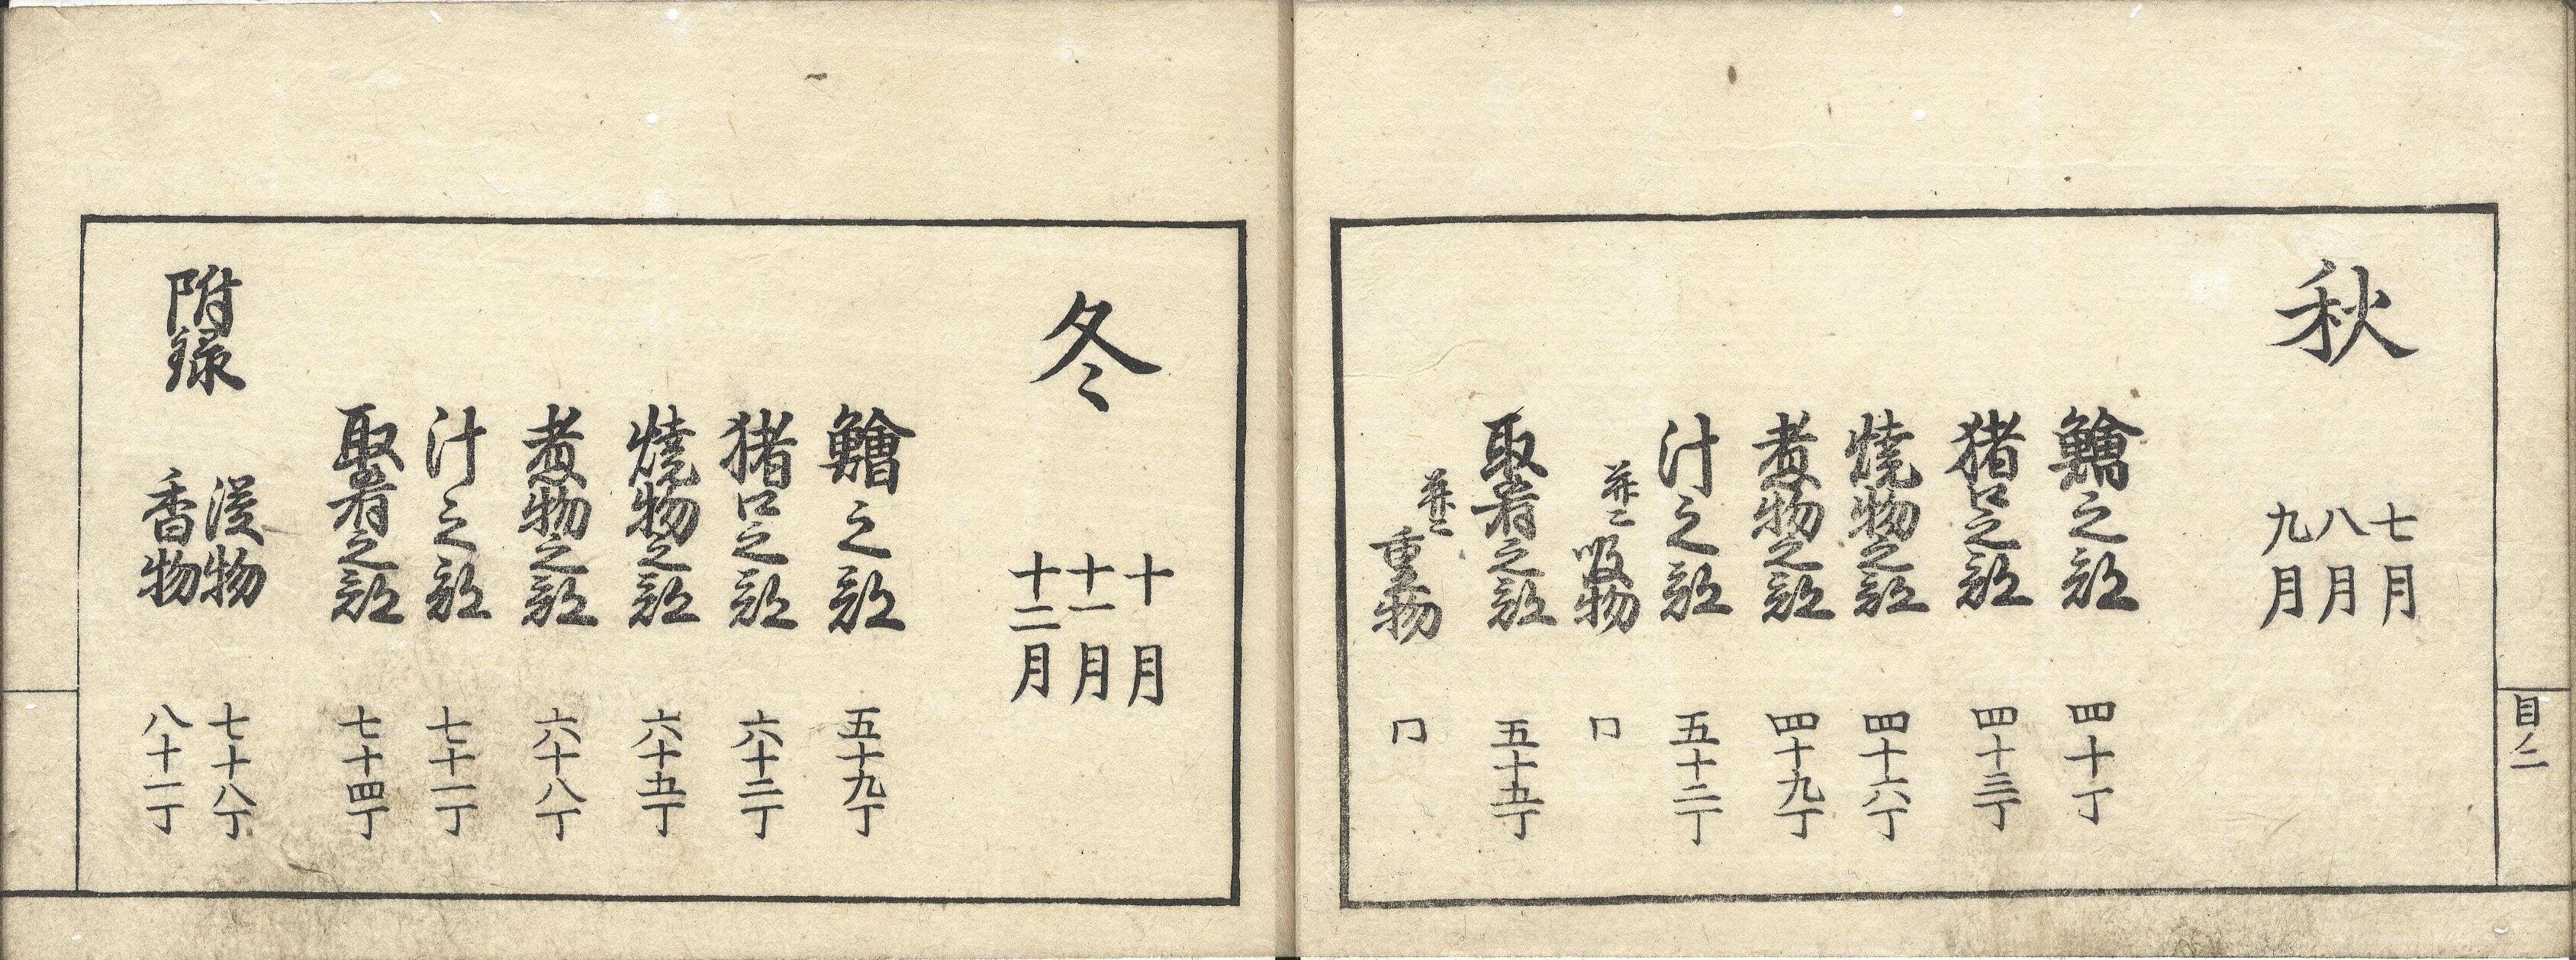 目ノ二
秋
七月
八月
九月
鱠之部 四十丁
猪口之部 四十三丁
燒物之部 四十六丁
煮物之部 四十九丁
汁之部 五十二丁
并ニ吸物 冂
取肴之部 五十五丁
并ニ重物 冂
冬
十月
十一月
十二月
鱠之部 五十九丁
猪口之部 六十二丁
燒物之部 六十五丁
煮物之部 六十八丁
汁之部 七十一丁
取肴之部 七十四丁
附録
浸物 七十八丁
香物 八十一丁